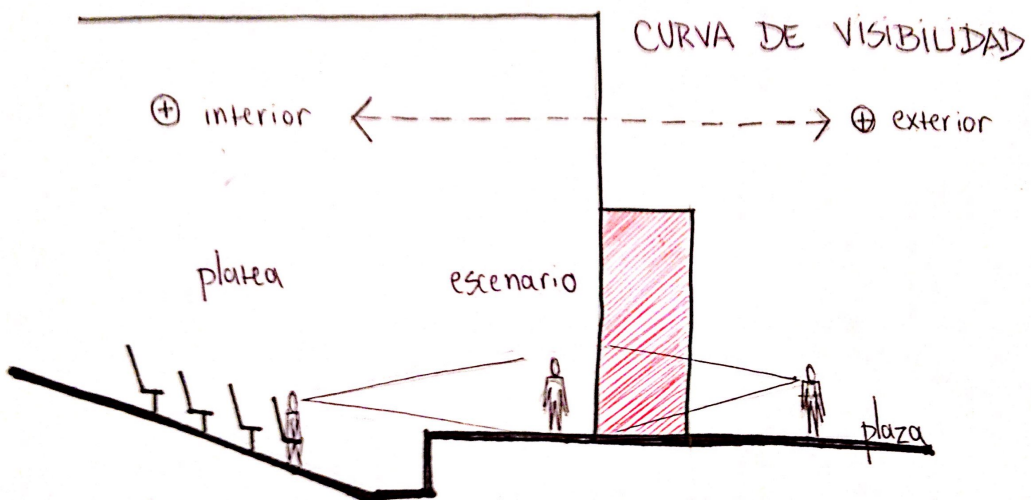 CURVA DE VISIBILIDAD
⊕ interior
⊕ exterior
platea
escenario
plaza